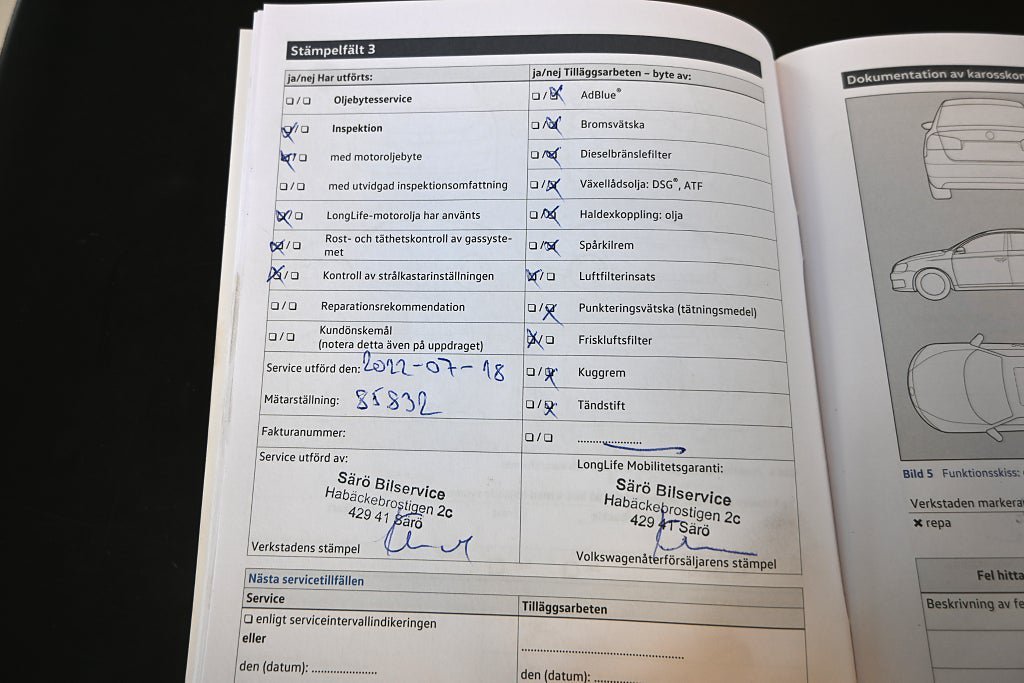 Stämpelfält 3
ja/nej Har utförts:
❏ / ❏ Oljebytesservice
❏ / ❏ Inspektion
❏ / ❏ med motoroljebyte
❏ / ❏ med utvidgad inspektionsomfattning
❏ / ❏ LongLife-motorolja har använts
❏ / ❏ Rost- och täthetskontroll av gassyste-
met
❏ / ❏ Kontroll av strålkastarinställningen
❏ / ❏ Reparationsrekommendation
❏ / ❏ Kundönskemål
(notera detta även på uppdraget)
Service utförd den: 2022-07-18
Mätarställning: 85832
Fakturanummer:
Service utförd av:
Särö Bilservice
Habäckebrostigen 2c
429 41 Särö
Verkstadens stämpel
ja/nej Tilläggsarbeten – byte av:
❏ / ❏ AdBlue®
❏ / ❏ Bromsvätska
❏ / ❏ Dieselbränslefilter
❏ / ❏ Växellådsolja: DSG®, ATF
❏ / ❏ Haldexkoppling: olja
❏ / ❏ Spårkilrem
❏ / ❏ Luftfilterinsats
❏ / ❏ Punkteringsvätska (tätningsmedel)
❏ / ❏ Friskluftsfilter
❏ / ❏ Kuggrem
❏ / ❏ Tändstift
❏ / ❏ ......................
LongLife Mobilitetsgaranti:
Särö Bilservice
Habäckebrostigen 2c
429 41 Särö
Volkswagenåterförsäljarens stämpel
Nästa servicetillfällen
Service
❏ enligt serviceintervallindikeringen
eller
den (datum): ....................
Tilläggsarbeten
..................................................
den (datum): ..............
Dokumentation av karosskon
Bild 5 Funktionsskiss:
Verkstaden markera
✖ repa
Fel hitta
Beskrivning av fe